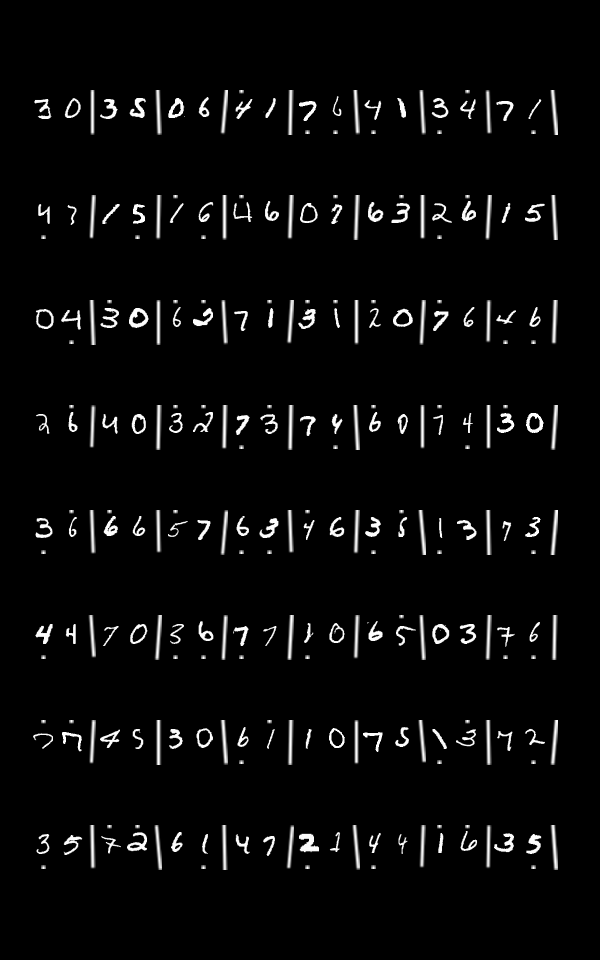 3 0 | 3 5 | 0 6 | 4̇ 1 | 7̣ 6̣ | 4̣ 1 | 3̣ 4̇ | 7 1̣ |
4̣ 3 | 1 5̣ | 1̇ 6̣ | 4̇ 6 | 0 7̇ | 6 3̇ | 2̣ 6̇ | 1 5 |
0 4̣ | 3̇ 0 | 6̇ 2̇ | 7 1̇ | 3̇ 1̇ | 2̇ 0 | 7̇ 6 | 4̣ 6̣ |
2 6̇ | 4 0 | 3̇ 2̇ | 7̣ 3̇ | 7 4̣ | 6̇ 0 | 7̇ 4̣ | 3 0 |
3̣ 6̇ | 6̇ 6 | 5̇ 7 | 6̣ 3̣ | 4̇ 6 | 3̣ 5̇ | 1̣ 3 | 7 3̣ |
4̣ 4 | 7 0 | 3̣ 6̣ | 7̣ 7 | 1̣ 0 | 6 5̇ | 0 3 | 7̣ 6̣ |
7̇ 7̇ | 4 5 | 3 0 | 6̣ 1̇ | 1 0 | 7 5 | 1 3̇ | 7 2̣ |
3̣ 5 | 7̇ 2̇ | 6 1̣ | 4 7 | 2̣ 1 | 4̣ 4 | 1̇ 6̇ | 3 5̣ |